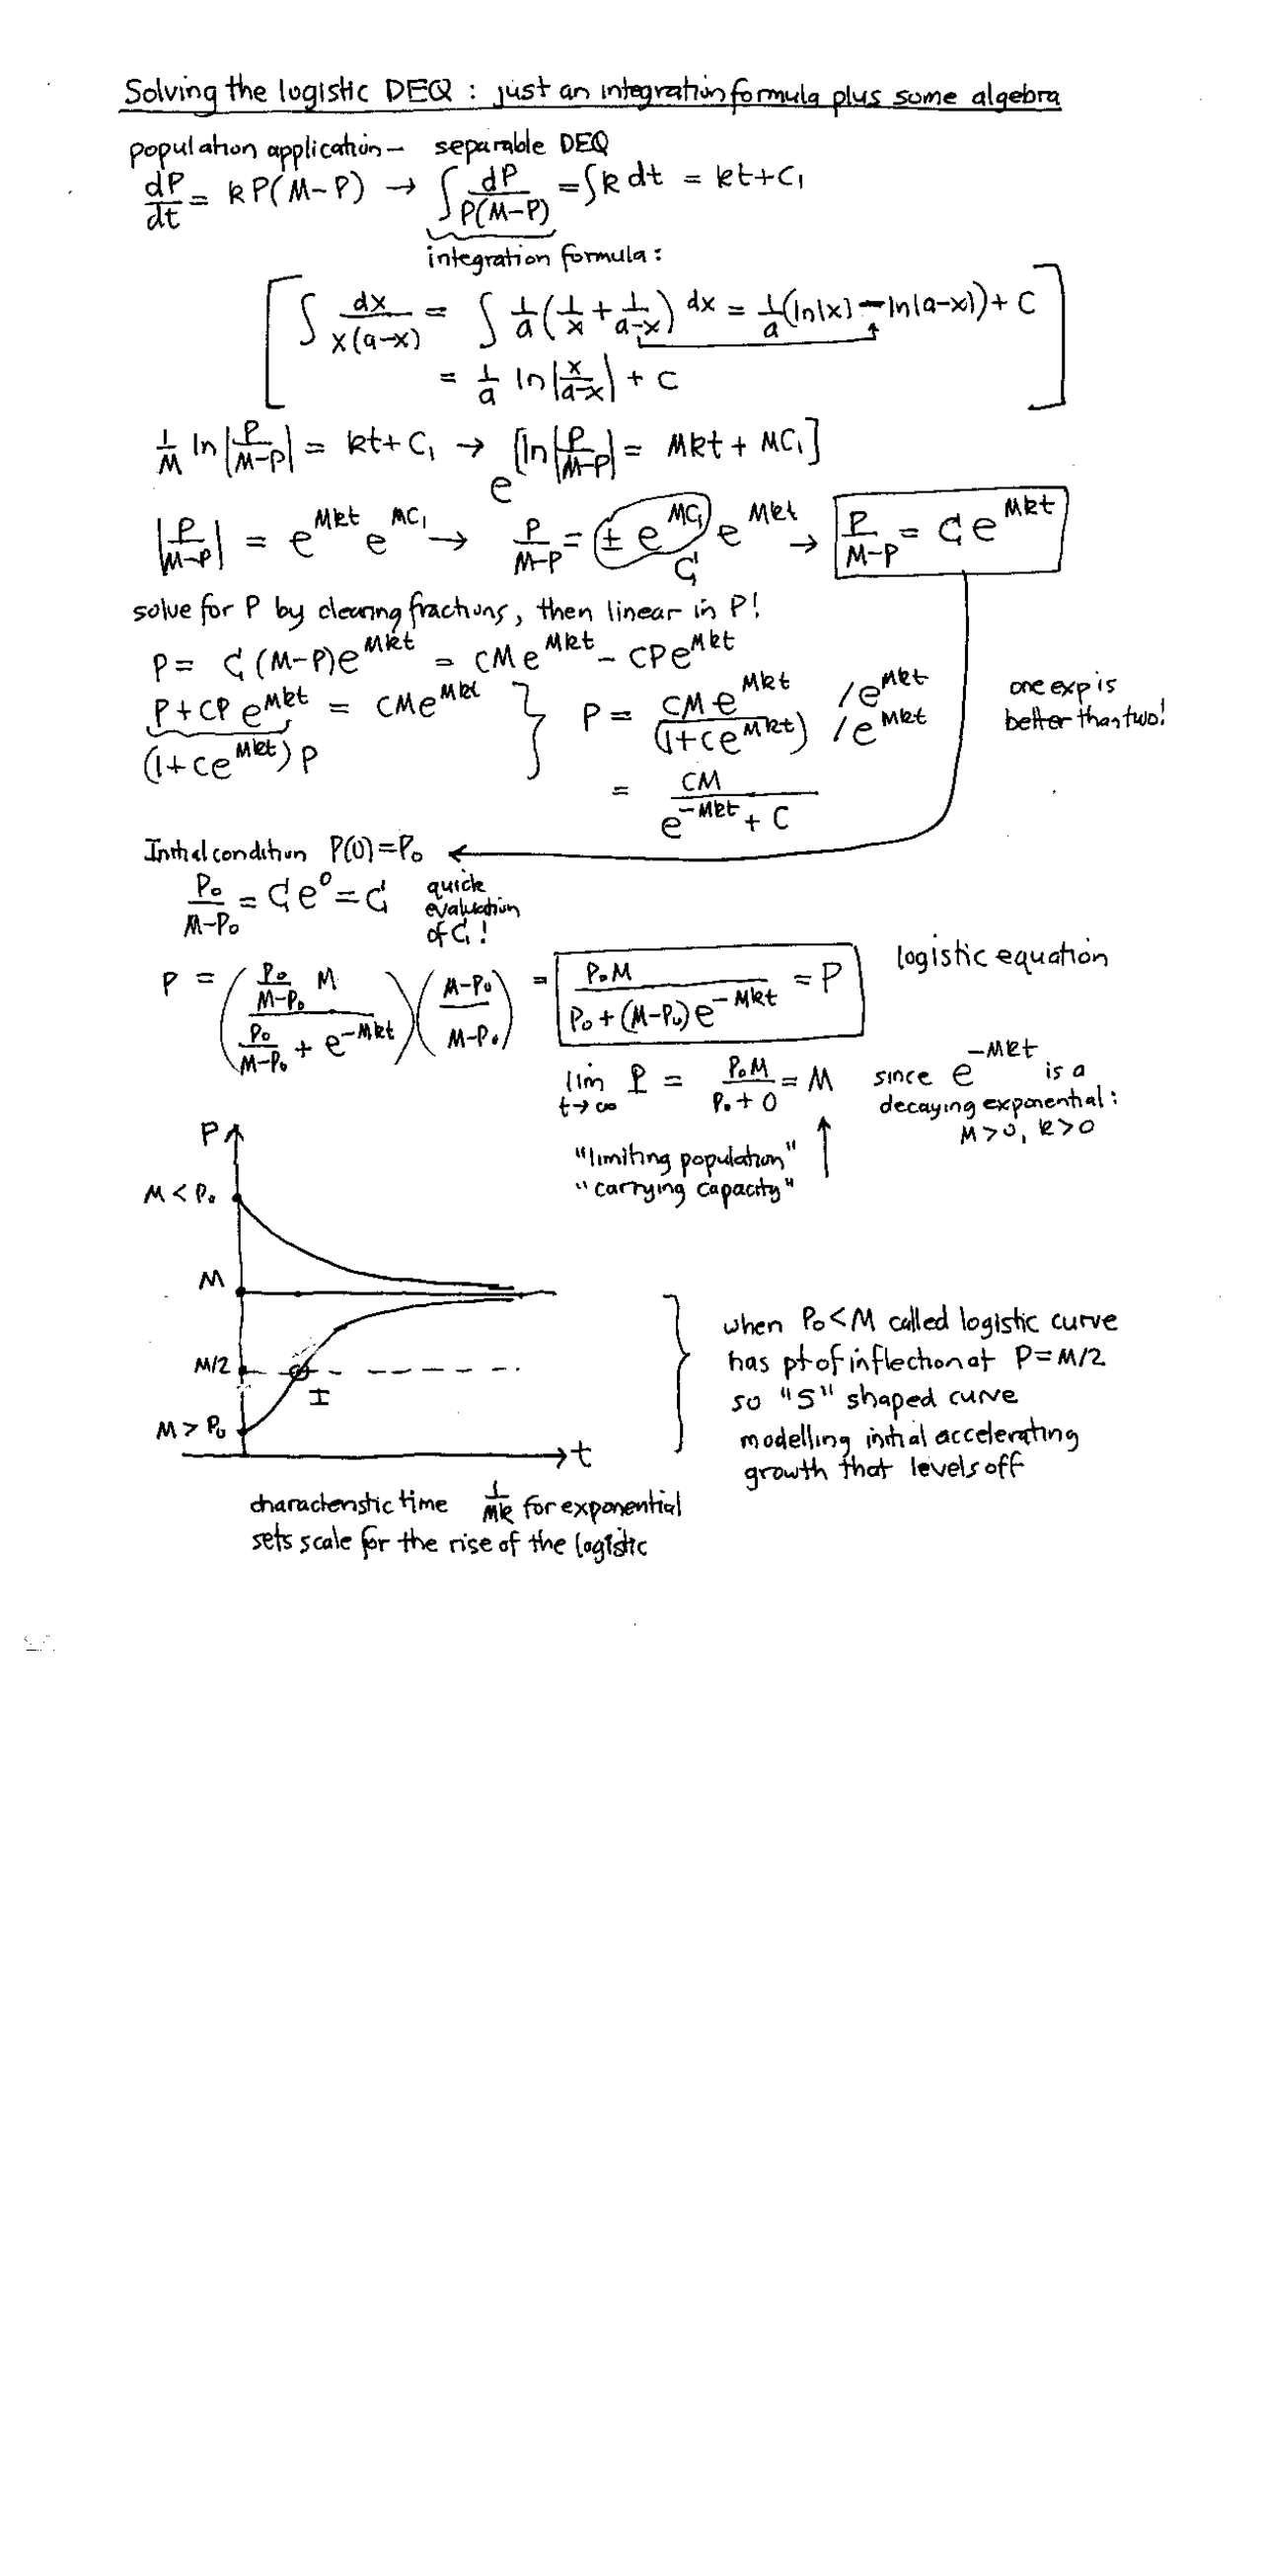 Solving the logistic DEQ : just an integration formula plus some algebra
population application – separable DEQ
dP/dt = kP(M-P) → ∫ dP/P(M-P) = ∫k dt = kt+C₁
integration formula:
[∫ dx/x(a-x) = ∫ 1/a (1/x + 1/a-x) dx = 1/a (ln|x| - ln|a-x|) + C
= 1/a ln|x/a-x| + C]
1/M ln|P/M-P| = kt+C₁ → e^[ln|P/M-P| = Mkt + MC₁]
|P/M-P| = e^Mkt e^MC₁ → P/M-P = ± e^MC₁ e^Mkt → P/M-P = C e^Mkt
C
solve for P by clearing fractions, then linear in P!
P = C (M-P)e^Mkt = CMe^Mkt - CPe^Mkt
P + CP e^Mkt = CMe^Mkt } P = CM e^Mkt /e^Mkt / (1+Ce^Mkt) /e^Mkt
one exp is
better than two!
(1+Ce^Mkt) P
= CM / e^-Mkt + C
Initial condition P(0)=P₀
P₀/M-P₀ = C e⁰ = C
quick
evaluation
of C!
P = (P₀/M-P₀ M / P₀/M-P₀ + e^-Mkt)(M-P₀/M-P₀) = P₀M / P₀+(M-P₀)e^-Mkt = P
logistic equation
lim t→∞ P = P₀M/P₀+0 = M since e^-Mkt is a
decaying exponential:
M>0, k>0
"limiting population"
"carrying capacity"
P
M < P₀
M
M/2
I
M > P₀
t
when P₀<M called logistic curve
has pt of inflection at P=M/2
so "S" shaped curve
modelling initial accelerating
growth that levels off
characteristic time 1/Mk for exponential
sets scale for the rise of the logistic